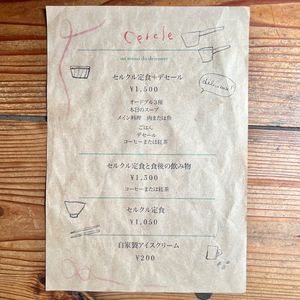 Cercle
au menu du déjeuner
délicieux!
セルクル定食+デセール
¥1,500
オードブル3種
本日のスープ
メイン料理 肉または魚
ごはん
デセール
コーヒーまたは紅茶
セルクル定食と食後の飲み物
¥1,300
コーヒーまたは紅茶
セルクル定食
¥1,050
自家製アイスクリーム
¥200